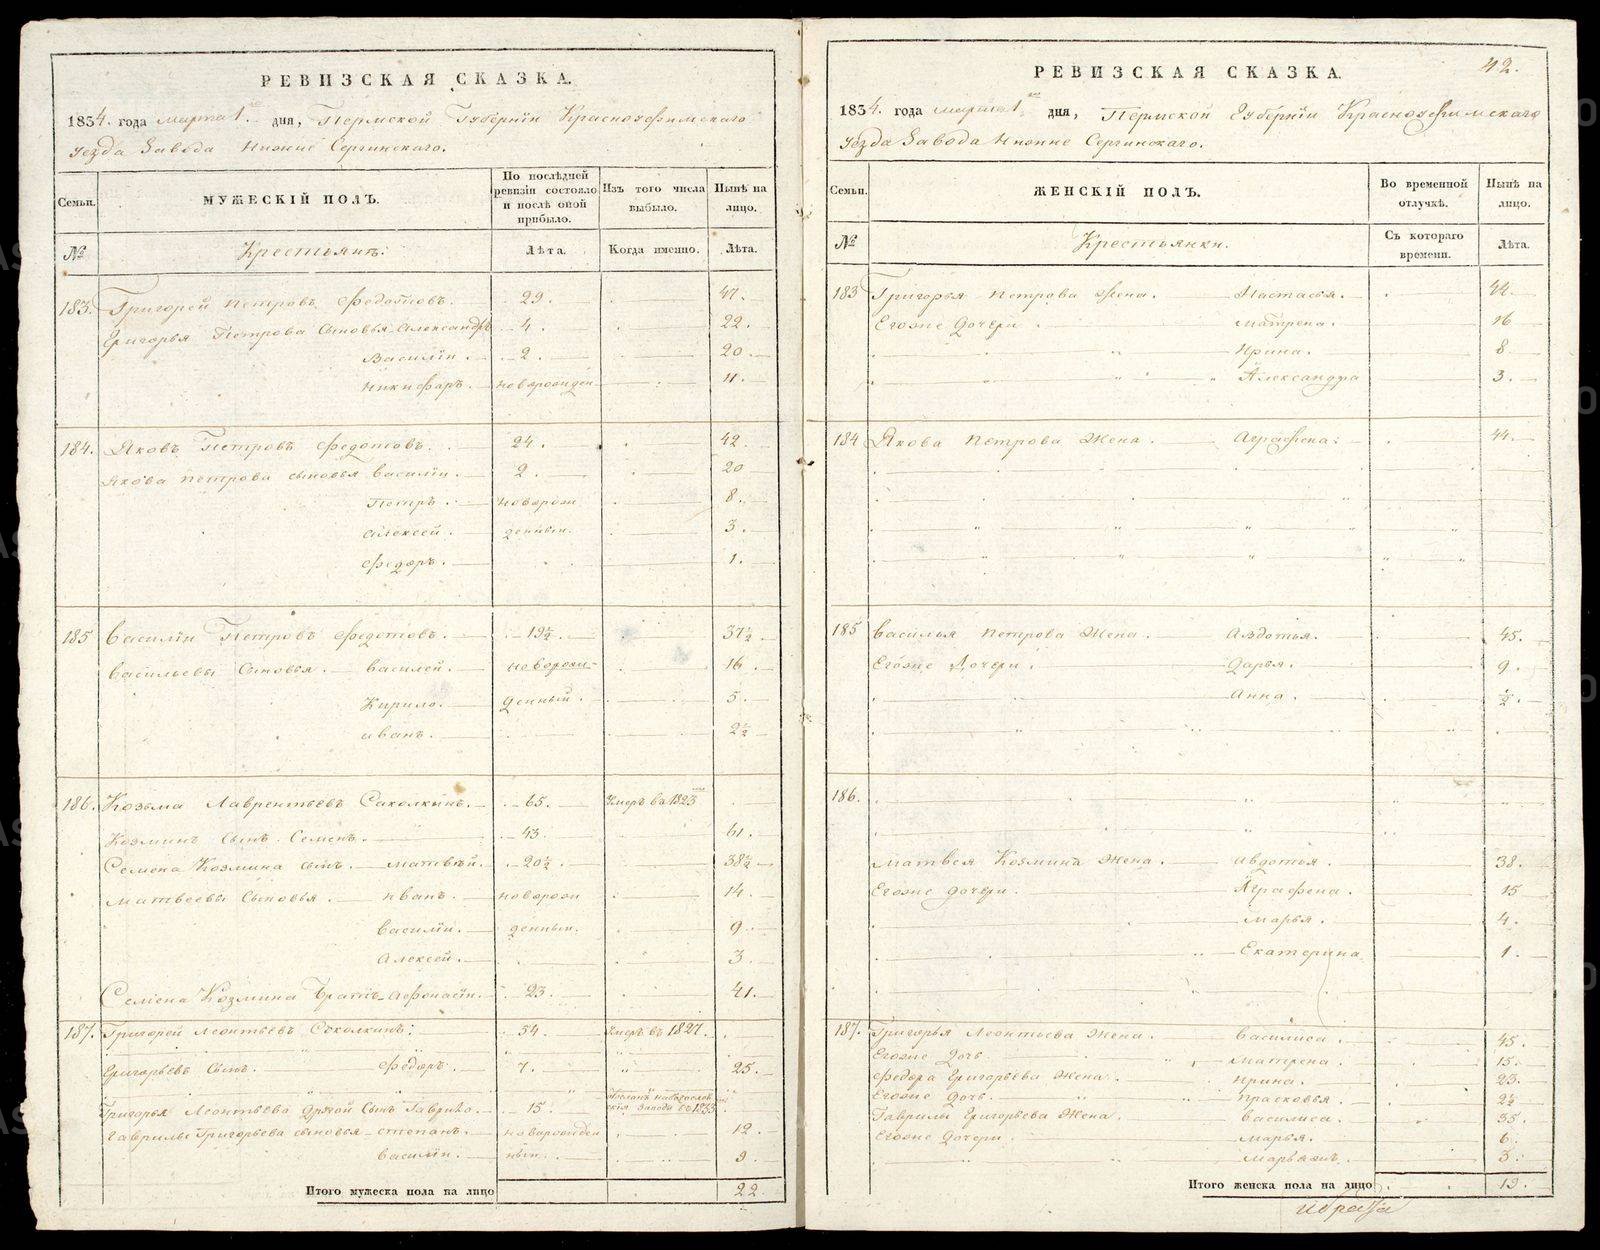 РЕВИЗСКАЯ СКАЗКА.
1834. года марта 1. дня, Пермской Губернїи Красноуфимскаго
Уезда Завода Нижне Сергинскаго.
Семьи.
МУЖЕСКІЙ ПОЛЪ.
По послѣдней ревизіи состояло и послѣ оной прибыло.
Изъ того числа выбыло.
Нынѣ на лицо.
№
Крестьянъ:
Лѣта.
Когда именно.
Лѣта.
183. Григорей Петровъ Федотовъ. 29. 47.
Григорья Петрова Сыновья Александръ 4. 22.
Василїи. 2. 20
Никифаръ. новорожден 11.
184. Яковъ Петровъ Федотовъ. 24. 42.
Якова Петрова сыновья Василїи. 2. 20
Петръ. новорож 8.
Алексей. денныи. 3.
Федоръ. 1.
185 Василїи Петровъ Федотовъ. 19½ 37½
Васильевы Сыновья. Василей. новорож- 16.
Кирило. денный. 5.
Иванъ. 2½
186. Козьма Лаврентьевъ Соколкинъ. 65. Умеръ въ 1823
Козминъ сынъ Семенъ. 43. 61.
Семена Козмина сынъ. Матвѣй. 20½. 38½
Матвеевы Сыновья. Иванъ. новорож 14.
Василїи. денныи. 9.
Алексей. 3.
Семена Козмина Братъ Афонасїи. 23. 41.
187. Григорей Леонтьевъ Соколкинъ: 54. Умеръ въ 1827.
Григорьевъ Сынъ. Федоръ. 7. 25.
Григорья Леонтьева другой Сынъ Гаврило. 15. завода въ 1833
Гаврилы Григорьева сыновья Степанъ. новорожден 12.
Василїи. ныи. 9.
Итого мужеска пола на лицо 22
РЕВИЗСКАЯ СКАЗКА.
42.
1834. года марта 1. дня, Пермской Губернїи Красноуфимскаго
Уезда Завода Нижне Сергинскаго.
Семьи.
ЖЕНСКІЙ ПОЛЪ.
Во временной отлучкѣ.
Нынѣ на лицо.
№
Крестьянки.
Съ котораго времени.
Лѣта.
183 Григорья Петрова Жена. Настасья. 44.
Егоже Дочери. Матрена. 16
Ирина. 8.
Александра 3.
184 Якова Петрова Жена. Аграфена. 44.
185 Василья Петрова Жена. Авдотья. 45.
Егоже Дочери. Дарья. 9.
Анна. ½.
186.
Матвея Козмина Жена. Авдотья. 38.
Егоже дочери. Аграфена. 15
Марья. 4.
Екатерина 1.
187. Григорья Леонтьева Жена. Василиса. 45.
Егоже Дочь Матрена 15.
Федора Григорьева Жена. Ирина. 23.
Егоже Дочь. Прасковья. 2½
Гаврилы Григорьева Жена. Василиса. 35.
Егоже Дочери. Марья. 6.
3.
Итого женска пола на лицо 19.